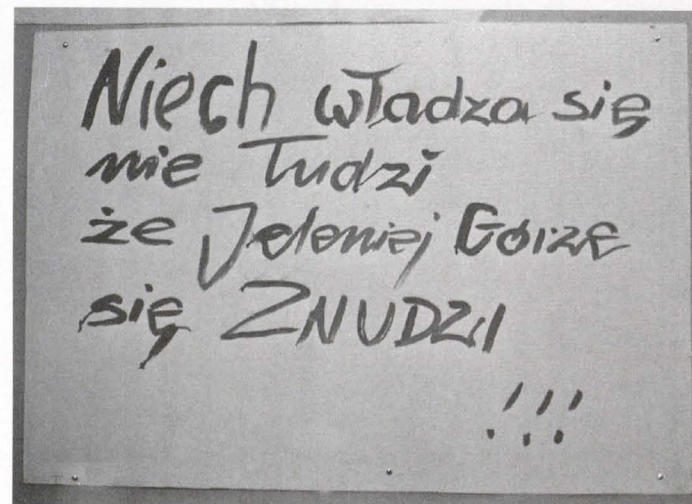 Niech władza się
nie łudzi
że Jeleniej Górze
się ZNUDZI
!!!